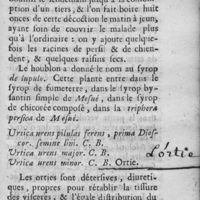 d'un tiers, & l'on fait boire huit
onces de cette décoction le matin à jeun,
ayant soin de couvrir le malade plus
qu'à l'ordinaire : on y ajoute quelque-
fois les racines de persil & de chien-
dent, & quelques raisins secs.
Le houblon a donné le nom au syrop
de lupulo. Cette plante entre dans le
syrop de fumeterre, dans le syrop by-
santin simple de Mesué, dans le syrop
de chicorée composé, dans la triphera
persica de Mesué.
Urtica urens pilulas ferens, prima Dios-
cor. semine lini. C. B.
Urtica urens major. C. B.
Urtica urens minor. C. B. Ortie.
L'ortie
Les orties sont détersives, diureti-
ques, propres pour rétablir la tissure
des visceres, & l'égale distribution du